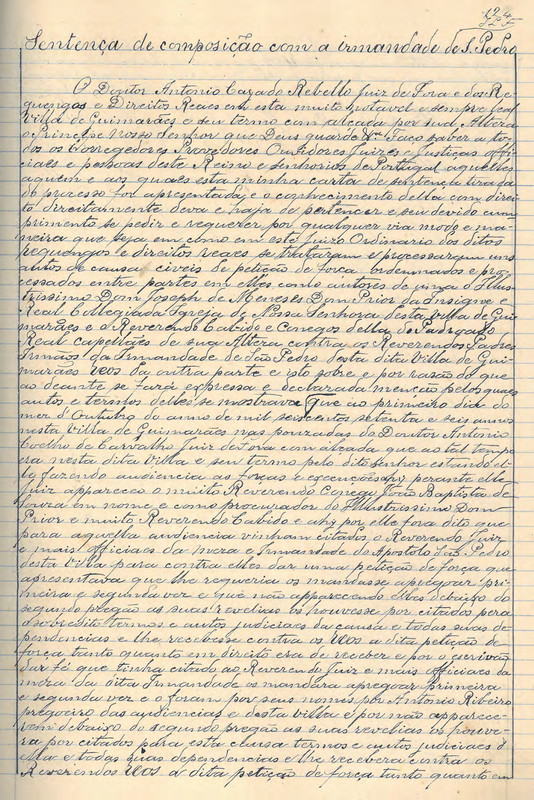 Sentença de composição com a irmandade de S. Pedro
O Doutor Antonio Cazado Rebello Juiz de Fora e dos Re-
guengos e Direitos Reaes em esta muito notavel e sempre leal
Villa de Guimarães e seu termo com alçada por sua Altera
o Principe Nosso Senhor que Deus guarde Faço saber a to-
dos os Corregedores Provedores Ouvidores Juizes e Justiças offi-
ciaes e pessoas deste Reino e senhorios de Portugal aquelles
aquem e aos quaes esta minha carta de sentença tirada
do processo for apresentada e o conhecimento della com direi-
to direitamente deva e haja de pertencer e seu devido cum
primento se pedir e requerer por qualquer via modo e ma-
neira que seja em como em este Juizo Ordinario dos ditos
reguengos e direitos reaes se trataram e processaram uns
autos de causa civeis de petição de força ordenados e pro-
cessados entre partes em elles como autores de uma o Illus-
trissimo Dom Joseph de Meneses Dom Prior da insigne e
Real Collegiada Igreja de Nossa Senhora desta villa de Gui-
marães e o Reverendo Cabido e Conegos della de Padroado
Real capellães de sua Altera contra os Reverendos Padres
Irmãos da Irmandade de São Pedro desta dita Villa de Gui-
marães reos da outra parte e isto sobre e por razão do que
ao deante se fará expressa e declarada menção pelos quaes
autos e termos delles se mostrava que ao primeiro dia do
mez d'Outubro do anno de mil seiscentos setenta e seis annos
nesta Villa de Guimarães nas pouzadas do Doutor Antonio
Coelho de Carvalho Juiz de Fora com alçada que ao tal tempo
era nesta dita Villa e seu termo pelo dito senhor estando el-
le fazendo audiencia as forças e execuções ahy perante elle
Juiz appareceo o muito Reverendo Conego João Baptista de
Souza em nome e como procurador do Illustrissimo Dom
Prior e muito Reverendo Cabido e ahy por elle fora dito que
para aquella audiencia vinham citados o Reverendo Juiz
e mais officiaes da meza e Irmandade do Apostolo São Pedro
desta Villa para contra elles dar uma petição de força que
apresentava que lhe requeria os mandasse apregoar pri-
meira e segunda vez e que não apparecendo elles debaixo do
segundo pregão as suas revelias os houvesse por citados pera
o sobredito termos e autos judiciaes da causa e todas suas de-
pendencias e lhe recebesse contra os reos a dita petição de
força tanto quanto em direito era de receber e por o escrivão
dar fé que tinha citado ao Reverendo Juiz e mais officiaes da
meza da dita Irmandade os mandara apregoar primeira
e segunda vez e o foram por seus nomes por Antonio Ribeiro
pregoeiro das audiencias e desta villa e por não apparece-
rem debaixo do segundo pregão as suas revelias os houve-
ra por citados para esta causa termos e autos judiciaes d'
ella e todas suas dependencias e lhe recebera contra os
Reverendos reos a dita petição de força tanto quanto em